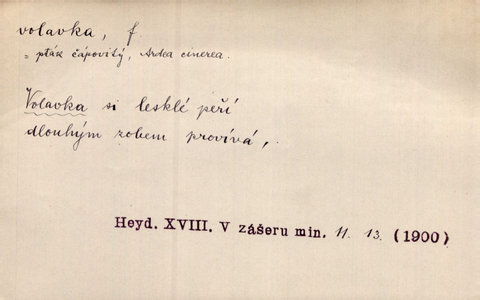 volavka, f.
= pták čápovitý, Ardea cinerea.
Volavka si lesklé peří
dlouhým zobem provívá,
Heyd. XVIII. V zášeru min. 11. 13. (1900)